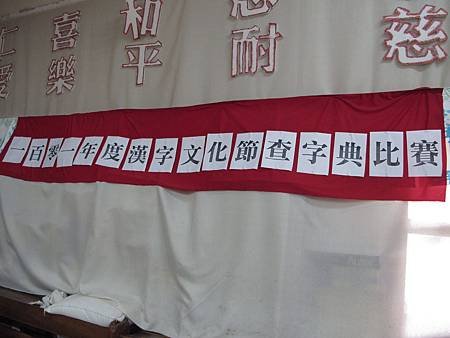 仁愛
喜樂
和平
忍耐
慈
一百零一年度漢字文化節查字典比賽